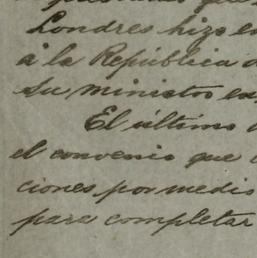 Londres hizo en
á la República
su ministro ex
El último
el convenio que
ciones por medio
para completar